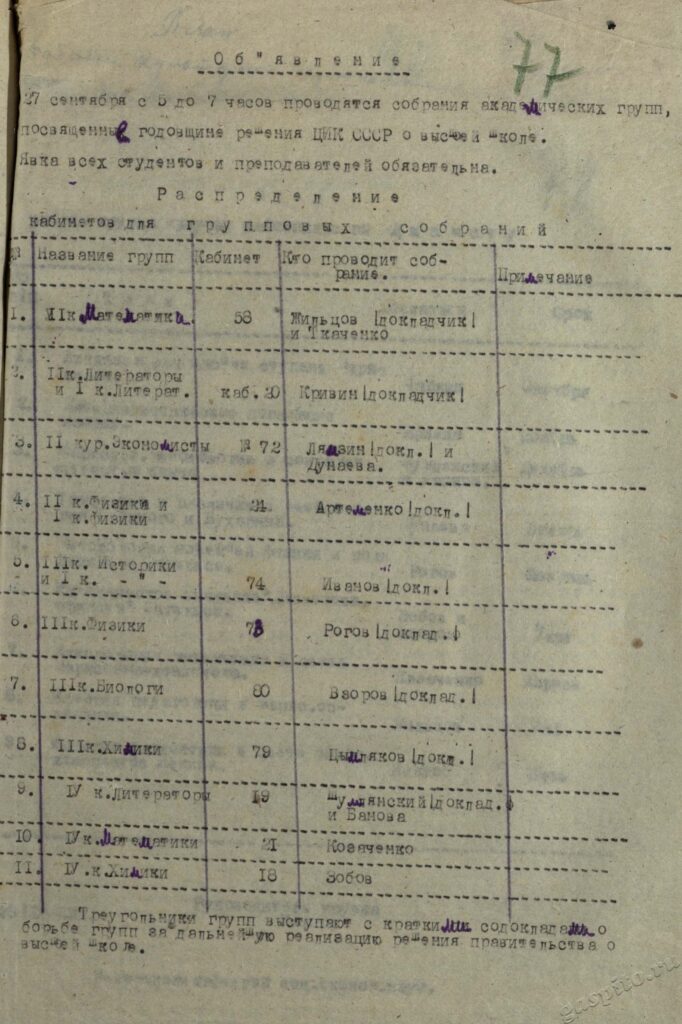 77
Об"явление
27 сентября с 5 до 7 часов проводятся собрания академических групп,
посвященные годовщине решения ЦИК СССР о высшей школе.
Явка всех студентов и преподавателей обязательна.
Распределение
кабинетов для групповых собраний
№ Название групп Кабинет Кто проводит соб- Примечание
рание.
1. IIк.Математики. 58 Жильцов !докладчик!
и Ткаченко
2. IIк.Литераторы
и I к.Литерат. каб.20 Кривин!докладчик!
3. II кур.Экономисты № 72 Лямзин!докл.! и
Дунаева.
4. II к.Физики и 24 Артеменко!докл.!
I к.физики
5. IIIк. Историки
и I к. -"- 74 Иванов!докл.!
6. IIIк.Физики 73 Рогов!доклад.!
7. IIIк.Биологи 80 Взоров!доклад.!
8. IIIк.Химики 79 Цымляков!докл.!
9. IУ к.Литераторы 19 Шумлянский!доклад.!
и Бамова
10. IУк.Математики 21 Козаченко
11. IУ.к.Химики 18 Зобов
Треугольники групп выступают с краткими содокладами о
борьбе групп за дальнейшую реализацию решения правительства о
высшей школе.
gaspito.ru